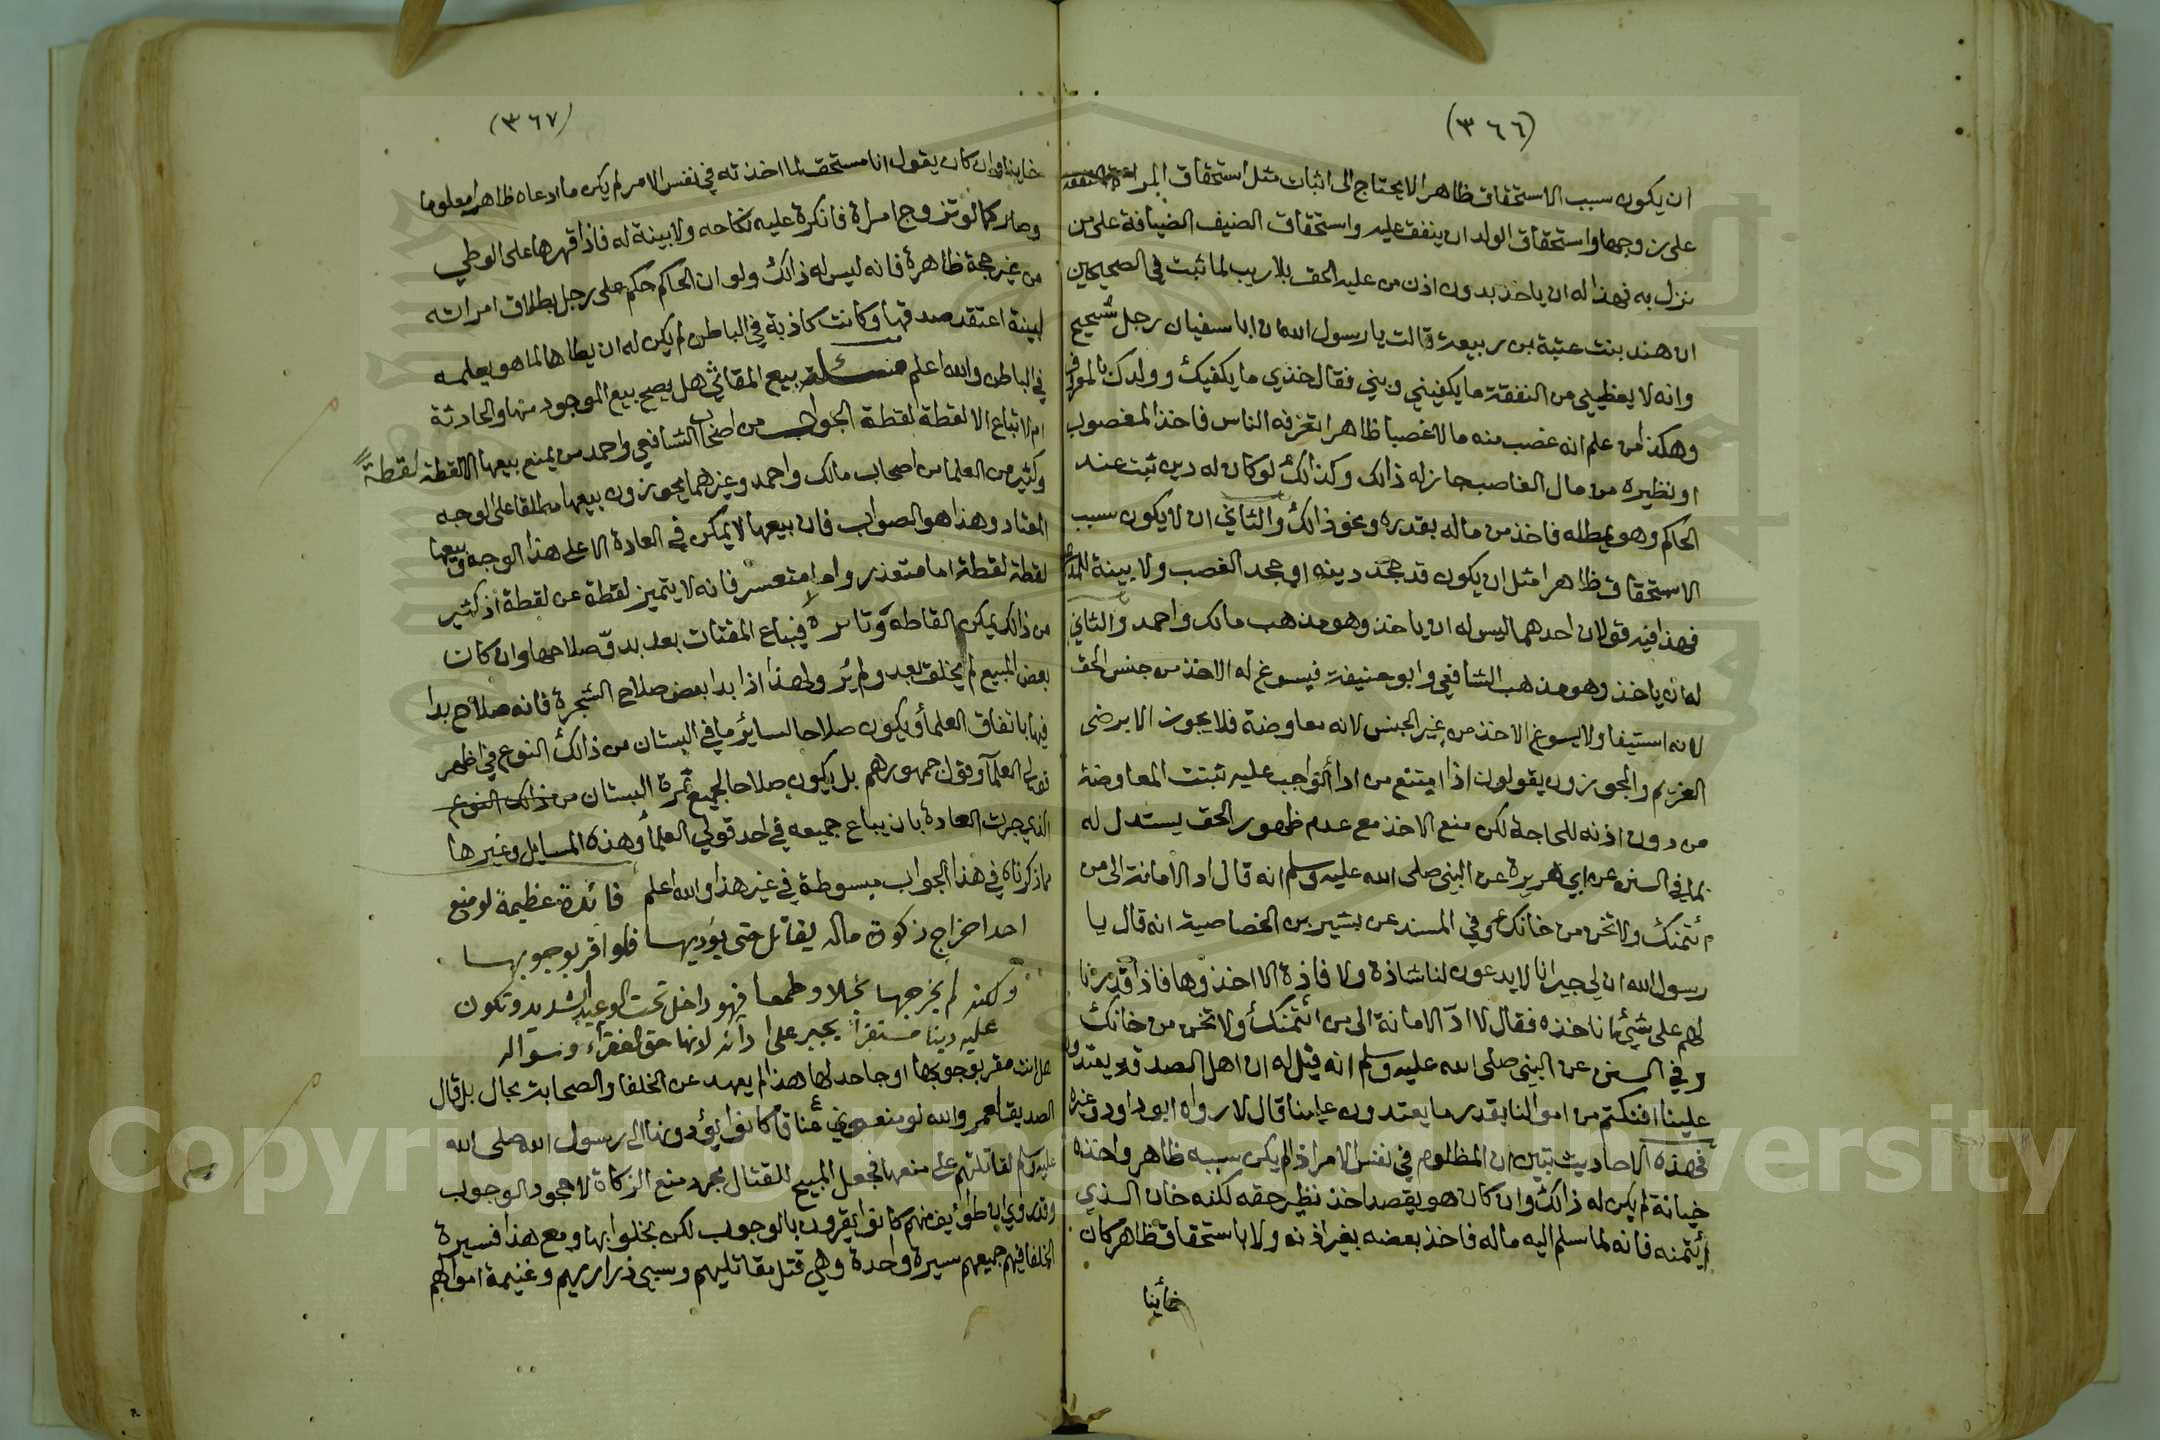 (٣٦٦)
ان يكون سبب الاستحقاق ظاهرا لا يحتاج الى اثبات مثل استحقاق المراة النفقة
على زوجها واستحقاق الولد ان ينفق عليه واستحقاق الضيف الضيافة على من
نزل به فهذا له ان ياخذ بدون اذن من عليه الحق بلا ريب لما ثبت في الصحيحين
ان هند بنت عتبة بن ربيعة قالت يا رسول الله ان ابا سفيان رجل شحيح
وانه لا يعطيني من النفقة ما يكفيني وبني فقال خذي ما يكفيك وولدك بالمعروف
وهكذا من علم انه غصب منه مالا غصبا ظاهرا تعرفه الناس فاخذ المغصوب
او نظيره من مال الغاصب جاز له ذالك وكذالك لو كان له دين ثبت عند
الحاكم وهو يمطله فاخذ من ماله بقدره ونحو ذالك والثاني ان لا يكون سبب
الاستحقاق ظاهرا مثل ان يكون قد جحد دينه او جحد الغصب ولا بينة للمدعي
فهذا فيه قولان احدهما ليس له ان ياخذ وهو مذهب مالك واحمد والثاني
له ان ياخذ وهو مذهب الشافعي وابو حنيفة فيسوغ له الاخذ من جنس الحق
لانه استيفا ولا يسوغ الاخذ من غير الجنس لانه معاوضة فلا يجوز الا برضى
الغريم والمجوزون يقولون اذا امتنع من اداء الواجب عليه ثبتت المعاوضة
من دون اذنه للحاجة لكن منع الاخذ مع عدم ظهور الحق يستدل له
بما في السنن عن ابي هريرة عن النبي صلى الله عليه وسلم انه قال اد الامانة الى من
ائتمنك ولا تخن من خانك وفي المسند عن بشير بن الخصاصية انه قال يا
رسول الله ان لي جيرانا لا يدعون لنا شاذة ولا فاذة الا اخذوها فاذا قدرنا
لهم على شيئ اناخذه فقال لا اد الامانة الى من ائتمنك ولا تخن من خانك
وفي السنن عن النبي صلى الله عليه وسلم انه قيل له ان اهل الصدقة يعتدون
علينا افنكتم من اموالنا بقدر ما يعتدون علينا قال لا رواه ابو داود وغيره
فهذه الاحاديث تبين ان المظلوم في نفس الامر اذا لم يكن سببه ظاهر واخذه
خيانة لم يكن له ذالك وان كان هو يقصد اخذ نظير حقه لكنه خان الذي
ائتمنه فانه لما سلم اليه ماله فاخذ بعضه بغير اذنه ولا باستحقاق ظاهر كان
خائنا
(٣٦٧)
خاينا وان كان يقول انا مستحق لما اخذته في نفس الامر لم يكن ما ادعاه ظاهرا معلوما
وصار كما لو تزوج امراة فانكرة عليه نكاحه ولا بينة له فاذا قهرها على الوطي
من غير حجة ظاهرة فانه ليس له ذالك ولو ان الحاكم حكم على رجل بطلاق امراته
ببينة اعتقد صدقها وكانت كاذبة في الباطن لم يكن له ان يطاها لما هو يعلمه
في الباطن والله اعلم مسئلة بيع المقاثي هل يصح بيع الموجود منها والحادثة
ام لا تباع الا لقطة لقطة الجواب من اصحاب الشافعي واحمد من يمنع بيعها الا لقطة لقطة
وكثير من العلما من اصحاب مالك واحمد وغيرهما يجوزون بيعها مطلقا على الوجه
المعتاد وهذا هو الصواب فان بيعها لا يمكن في العادة الا على هذا الوجه وبيعها
لقطة لقطة اما متعذر واما متعسر فانه لا يتميز لقطة عن لقطة اذ كثير
من ذالك يمكن القاطه وتاخره فيباع المقثات بعد بدو صلاحها وان كان
بعض المبيع لم يخلق بعد ولم ير ولهذا اذا بدا بعض صلاح الشجرة فانه صلاح بدا
فيها باتفاق العلما ويكون صلاحا لسائر ما في البستان من ذالك النوع في اظهر
قولي العلما وقول جمهورهم بل يكون صلاحا لجميع ثمرة البستان من ذالك النوع
الذي جرت العادة بان يباع جميعه في احد قولي العلما وهذه المسايل وغيرها
مما ذكرناه في هذا الجواب مبسوطة في غير هذا والله اعلم فائدة عظيمة لو منع
احد اخراج زكوة ماله يقاتل حتى يوديها فلو اقر بوجوبها
ولكنه لم يخرجها بخلا وطمعا فهو داخل تحت الوعيد الشديد وتكون
عليه دينا مستقرا يجبر على ادائه لانها حق الفقراء وسواله
هل انت مقر بوجوبها او جاحد لها هذا لم يعهد عن الخلفا والصحابة بحال بل قال
الصديق لعمر والله لو منعوني عناقا كانوا يؤدونها الى رسول الله صلى الله
عليه وسلم لقاتلتهم على منعها فجعل المبيح للقتال مجرد منع الزكاة لا جحود الوجوب
وقد روي ان طوائف منهم كانوا يقرون بالوجوب لكن بخلوا بها ومع هذا فسيرة
الخلفا فيهم جميعهم سيرة واحدة وهي قتل مقاتليهم وسبي ذراريهم وغنيمة اموالهم
Copyright © King Saud University